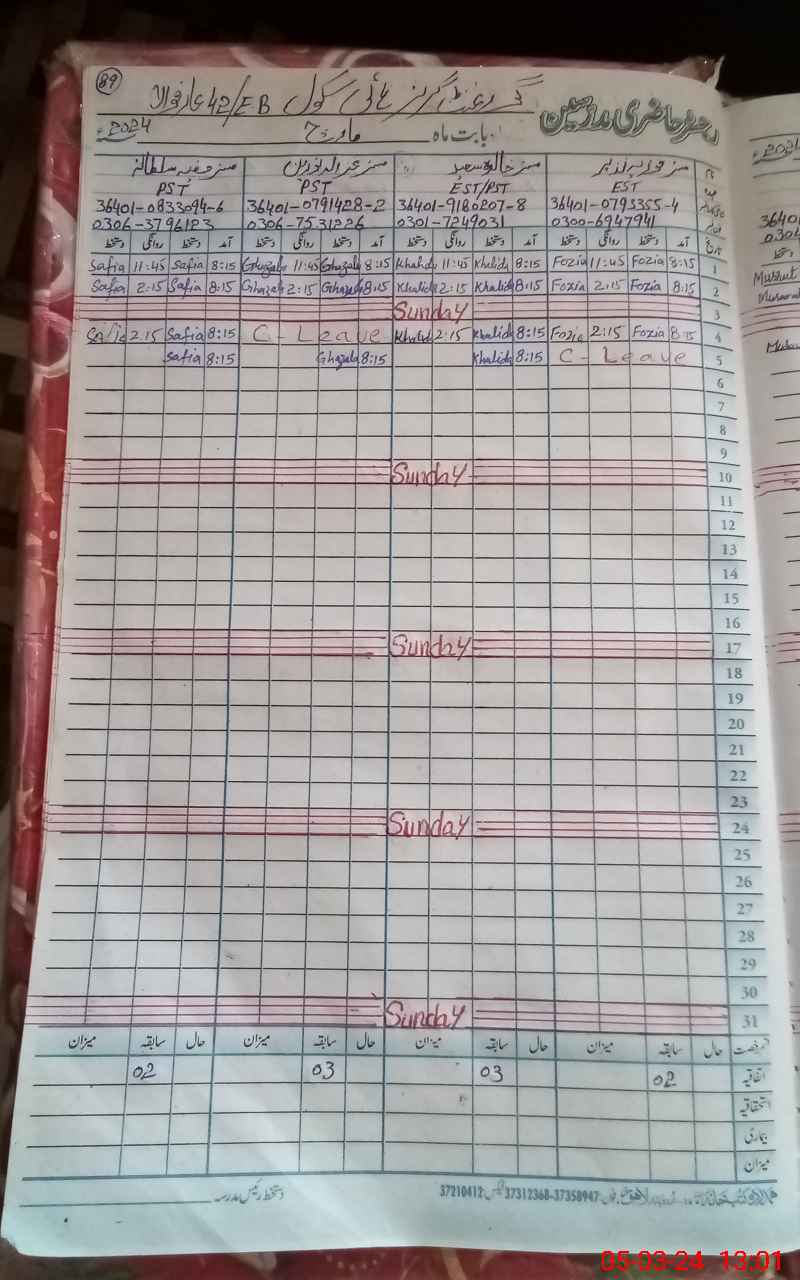 89
گورنمنٹ گرلز ہائی سکول 42/EB عارفوالا
رجسٹر حاضری مدرسین
بابت ماہ مارچ 2024ء
نام مسز مسز خالدہ سعید مسز مسز صفیہ سلطانہ
عہدہ EST EST/PST PST PST
36401-0795355-4 36401-9186207-8 36401-0791428-2 36401-0833094-6
0300-6947941 0301-7249031 0306-7531226 0306-3796123
تاریخ آمد دستخط روانگی دستخط آمد دستخط روانگی دستخط آمد دستخط روانگی دستخط آمد دستخط روانگی دستخط
1 8:15 Fozia 11:45 Fozia 8:15 Khalida 11:45 Khalida 8:15 Ghazala 11:45 Ghazala 8:15 Safia 11:45 Safia
2 8:15 Fozia 2:15 Fozia 8:15 Khalida 2:15 Khalida 8:15 Ghazala 2:15 Ghazala 8:15 Safia 2:15 Safia
3 Sunday
4 8:15 Fozia 2:15 Fozia 8:15 Khalida 2:15 Khalid C-Leave 8:15 Safia 2:15 Safia
5 C-Leave 8:15 Khalida 8:15 Ghazala 8:15 Safia
6
7
8
9
10 Sunday
11
12
13
14
15
16
17 Sunday
18
19
20
21
22
23
24 Sunday
25
26
27
28
29
30
31 Sunday
رخصت حال سابقہ میزان حال سابقہ میزان حال سابقہ میزان حال سابقہ میزان
اتفاقیہ 02 03 03 02
استحقاقیہ
بیماری
میزان
37358947-37312368 فیکس: 37210412
دستخط رئیس مدرسہ
05-03-24 13:01